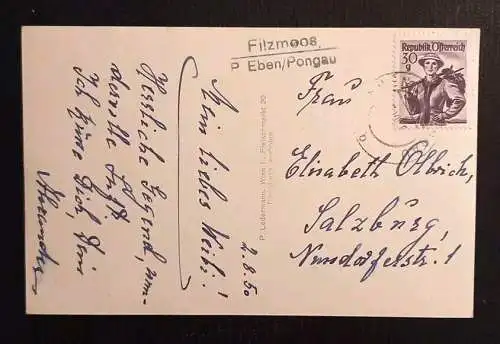 Filzmoos,
P. Eben/Pongau
Republik Österreich
30
g
2.8.50
Mein liebes Weib!
Herrliche Gegend, wun-
dervolle Luft.
Ich küsse Dich, Dein
Frau
Elisabeth Olbrich,
Salzburg,
Nonndorferstr. 1
P. Ledermann, Wien I., Fleischmarkt 20